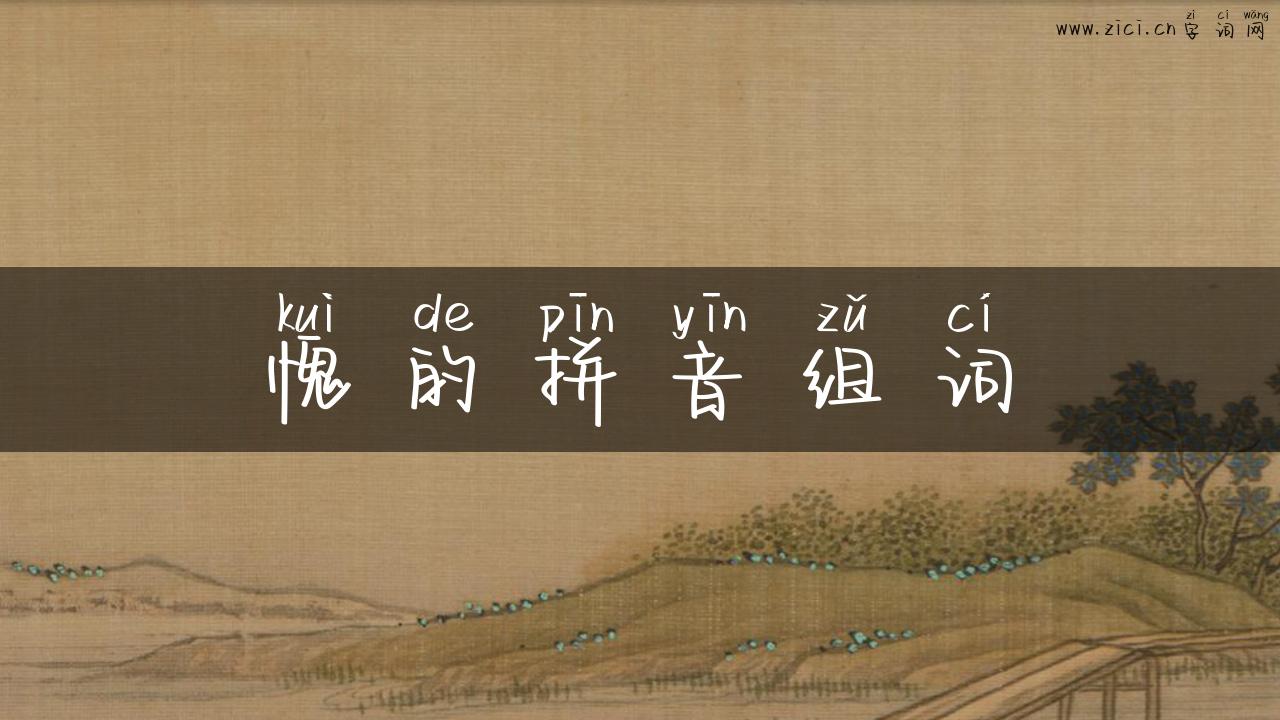 zì cí wǎng
www.zici.cn字词网
kuì de pīn yīn zǔ cí
愧的拼音组词